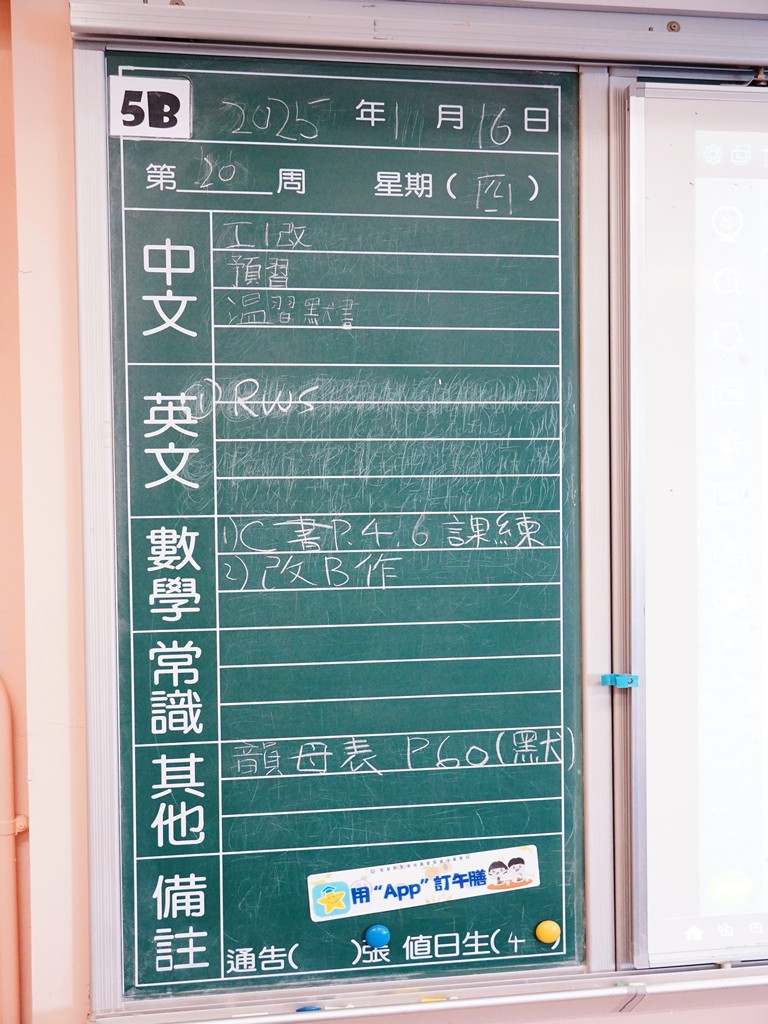 5B 2025 年 1 月 16 日
第 20 周 星期(四)
中文
工1改
預習
溫習默書
英文
1) RWS
數學
1) C書P.4,6 課練
2) 改B作
常識
其他
韻母表 P60(默)
備註
用“App”訂午膳
通告( )張 值日生(4 )